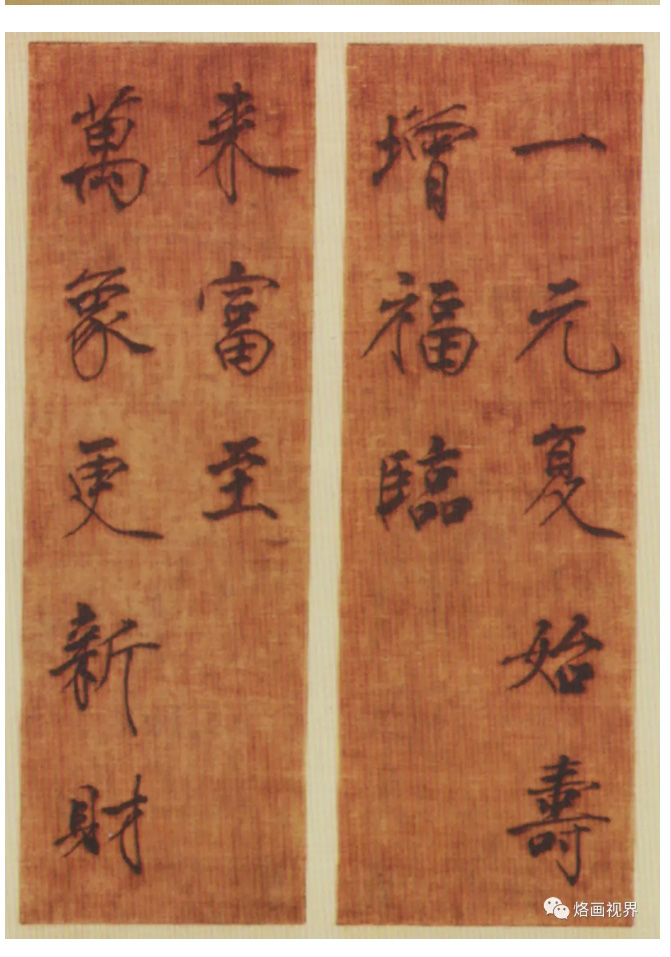 一元复始壽
增福臨
萬象更新財
来富至
烙画视界